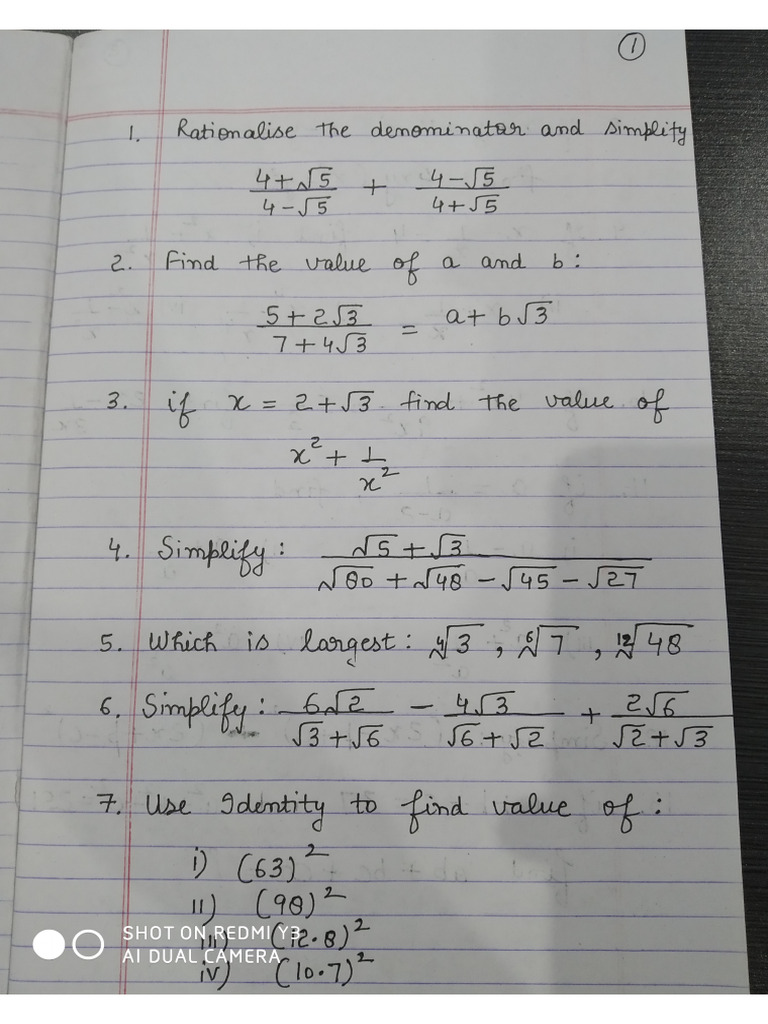 ①
1. Rationalise the denominator and simplify
4+√5 / 4-√5 + 4-√5 / 4+√5
2. Find the value of a and b:
5+2√3 / 7+4√3 = a+b√3
3. if x = 2+√3 find the value of
x² + 1/x²
4. Simplify: √5+√3 / √80+√48-√45-√27
5. Which is largest: ⁴√3, ⁶√7, ¹²√48
6. Simplify: 6√2 / √3+√6 - 4√3 / √6+√2 + 2√6 / √2+√3
7. Use Identity to find value of:
i) (63)²
ii) (98)²
iii) (12.8)²
iv) (10.7)²
SHOT ON REDMI Y3
AI DUAL CAMERA